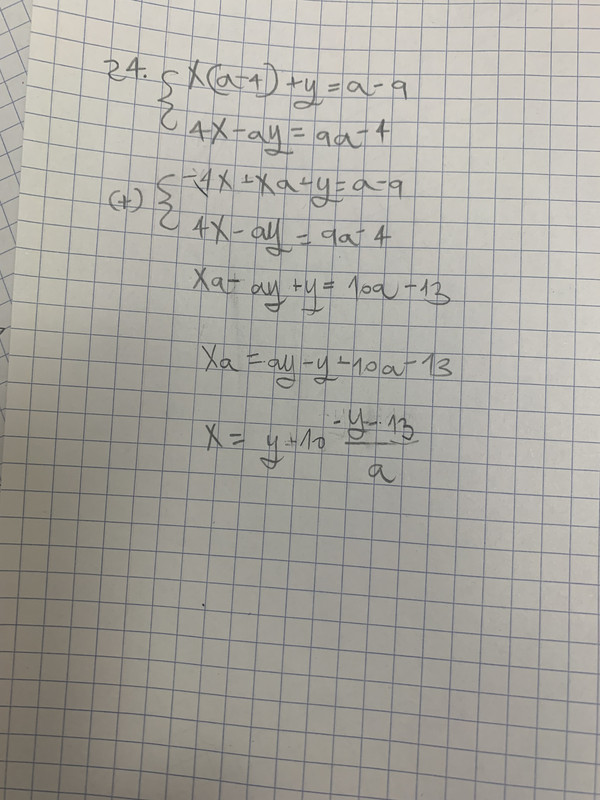 24. { x(a-4)+y=a-9
4x-ay=9a-4
(+) { -4x+xa+y=a-9
4x-ay=9a-4
xa-ay+y=10a-13
xa=ay-y+10a-13
x=y+10 -y-13
a